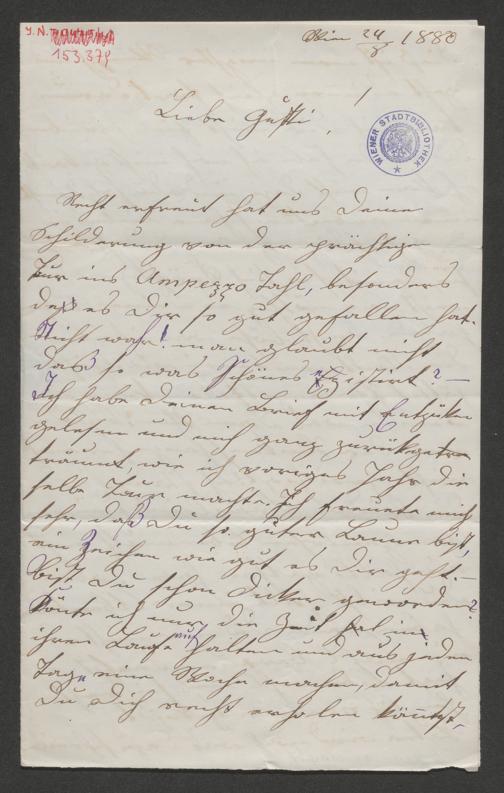 J.N.
153.379
Wien 24/8 1880
WIENER STADTBIBLIOTHEK
Liebe Gusti!
Recht erfreut hat uns Deine
Schilderung von der prächtigen
Tur ins Ampezzo Tahl, besonders
daß es Dir so gut gefallen hat.
Nicht war! man glaubt nicht
daß so was Schönes existirt? –
Ich habe Deinen Brief mit Entzüken
gelesen und mich ganz zurükgetr
träumt, wie ich voriges Jahr die
selbe Tour machte. Ich freuete mich
sehr, daß Du so guter Laune bist,
ein Zeichen wie gut es Dir geht. –
Bist Du schon dicker geworden?
Könte ich nur die Zeit in
ihren Laufe aufhalten und aus jeden
Tage eine Woche machen, damit
Du Dich recht erholen könntest,